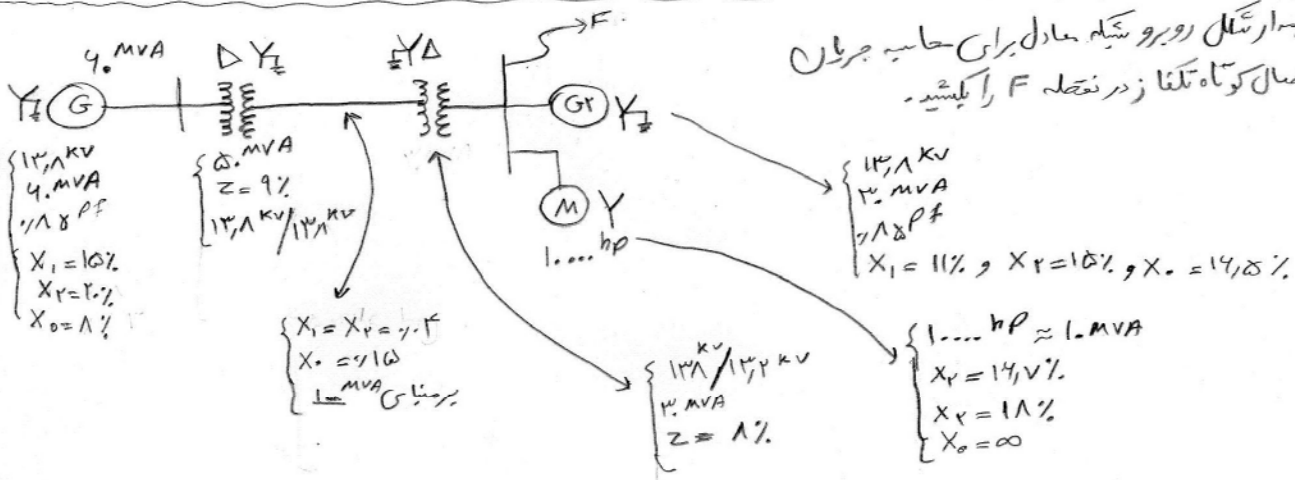 مدار شکل روبرو شبکه معادل برای محاسبه جریان
اتصال کوتاه تکفاز در نقطه F را بکشید.
۶۰ MVA
Δ Y
Y Δ
F
Y G
G۲ Y
M Y
۱۰۰۰۰ hp
۱۳,۸ KV
۶۰ MVA
۰,۸۵ Pf
X₁ = ۱۵٪
X۲ = ۲۰٪
X₀ = ۸٪
۵۰ MVA
Z = ۹٪
۱۳,۸ KV / ۱۳۸ KV
X₁ = X۲ = ۰,۰۴
X۰ = ۰,۱۵
برمبنای ۱۰۰ MVA
۱۳۸ KV / ۱۳,۲ KV
۳۰ MVA
Z = ۸٪
۱۳,۸ KV
۳۰ MVA
۰,۸۵ Pf
X₁ = ۱۱٪ و X۲ = ۱۵٪ و X۰ = ۱۶,۵٪
۱۰۰۰۰ hP ≈ ۱۰ MVA
X۲ = ۱۶,۷٪
X۲ = ۱۸٪
X₀ = ∞